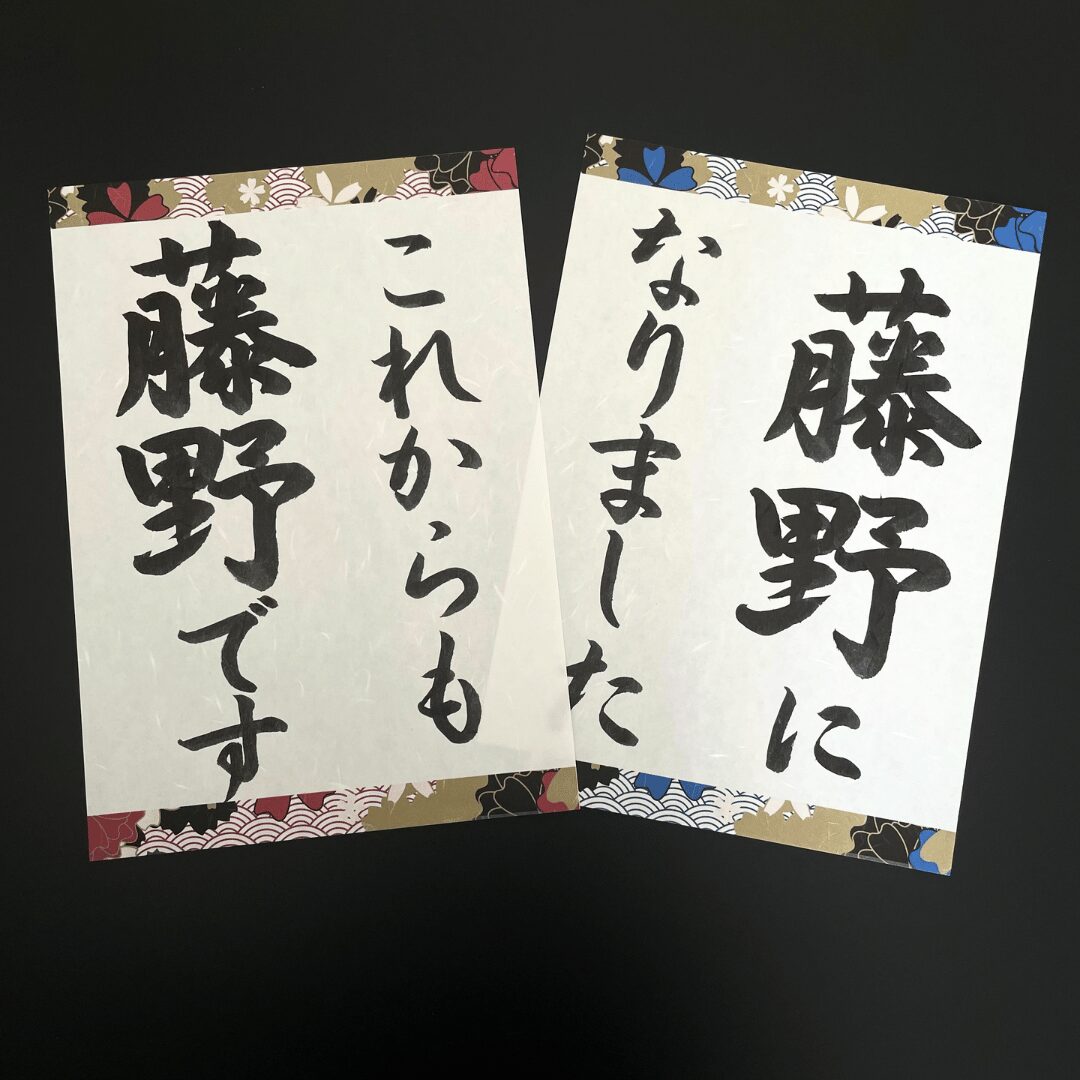 藤野に
なりました
これからも
藤野です